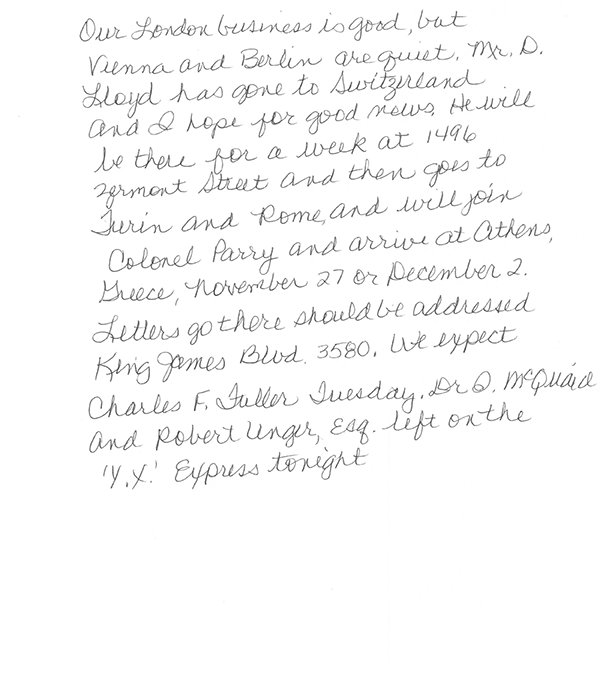 Our London business is good, but
Vienna and Berlin are quiet. Mr. D.
Lloyd has gone to Switzerland
and I hope for good news. He will
be there for a week at 1496
Zermont Street and then goes to
Turin and Rome, and will join
Colonel Parry and arrive at Athens,
Greece, November 27 or December 2.
Letters go there should be addressed
King James Blvd. 3580. We expect
Charles F. Fuller Tuesday. Dr. Q. McQuaid
and Robert Unger, Esq. left on the
'Y.X.' Express tonight